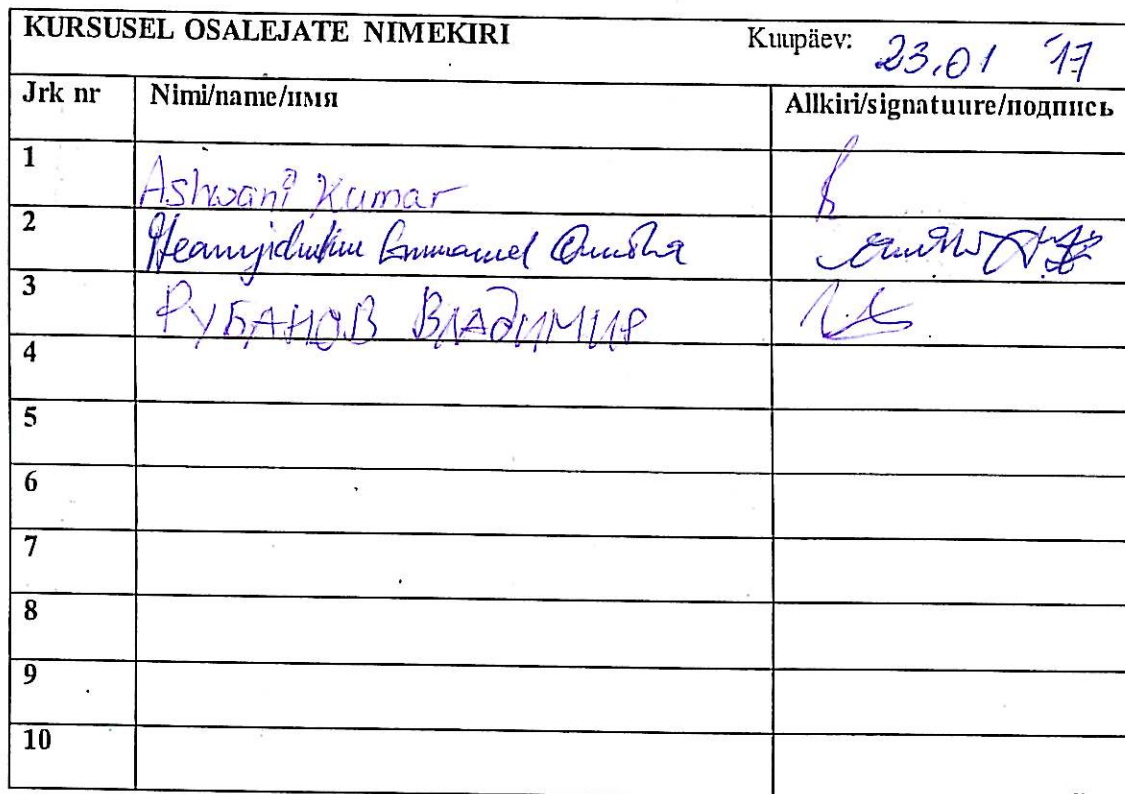 KURSUSEL OSALEJATE NIMEKIRI Kuupäev: 23.01 '17
Jrk nr Nimi/name/имя Allkiri/signatuure/подпись
1 Ashwani Kumar
2 Emmanuel
3 РУБАНОВ ВЛАДИМИР
4
5
6
7
8
9
10